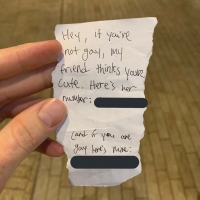 Hey, if you're
not gay, my
friend thinks you're
cute. Here's her
number:
(and if you are
gay here's mine: